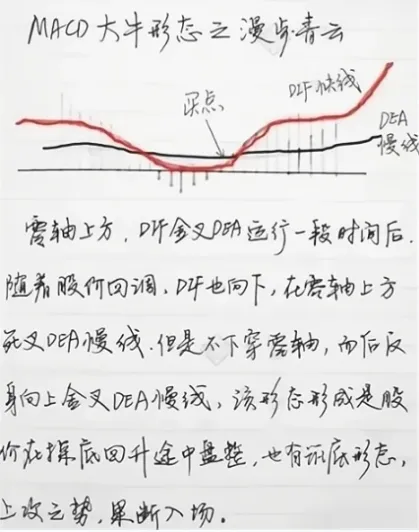 MACD大牛形态之漫步青云
买点
DIF快线
DEA
慢线
零轴上方，DIF金叉DEA运行一段时间后，
随着股价回调，DIF也向下，在零轴上方
死叉DEA慢线，但是不下穿零轴，而后反
身向上金叉DEA慢线，该形态形成是股
价在探底回升途中盘整，也有筑底形态，
上攻之势，果断入场。